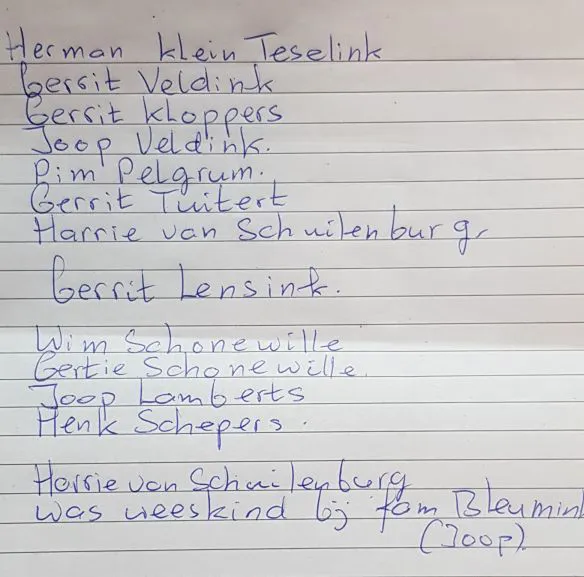 Herman klein Teselink
Gerrit Veldink
Gerrit Kloppers
Joop Veldink.
Pim Pelgrum.
Gerrit Tuitert
Harrie van Schuilenburg,
Gerrit Lensink.
Wim Schonewille
Gertie Schonewille.
Joop Lamberts
Henk Schepers.
Harrie van Schuilenburg
was weeskind bij fam Bleumink
(Joop).